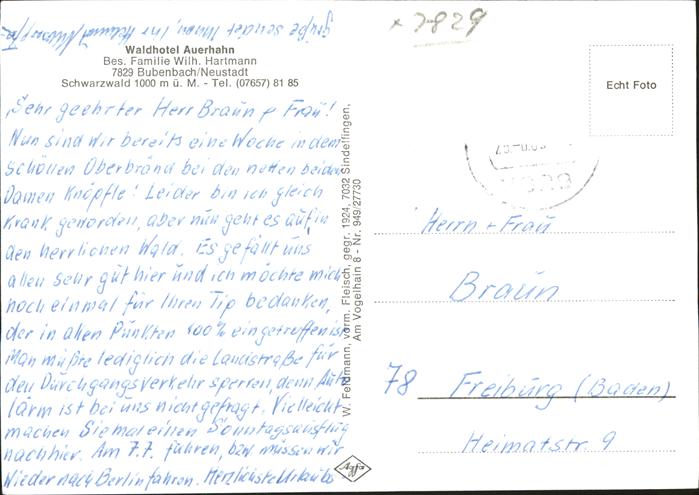 Waldhotel Auerhahn
Bes. Familie Wilh. Hartmann
7829 Bubenbach/Neustadt
Schwarzwald 1000 m ü. M. - Tel. (07657) 81 85
Sehr geehrter Herr Braun + Frau!
Nun sind wir bereits eine Woche in dem
schönen Oberbränd bei den netten beiden
Damen Knöpfle! Leider bin ich gleich
krank geworden, aber nun geht es auf in
den herrlichen Wald. Es gefällt uns
allen sehr gut hier und ich möchte mich
noch einmal für Ihren Tip bedanken,
der in allen Punkten 100% eingetroffen ist
Man müßte lediglich die Landstraße für
den Durchgangsverkehr sperren, denn Auto
lärm ist bei uns nicht gefragt. Vielleicht
machen Sie mal einen Sonntagsausflug
nach hier. Am 7.7. führen, bzw. müssen wir
wieder nach Berlin fahren. Herzlichste Urlaubs
grüße sendet Ihnen, Ihr Helmut
W. Feldmann, vorm. Fleisch, gegr. 1924, 7032 Sindelfingen,
Am Vogelhain 8 - Nr. 949/27730
Agfa
x 7829
Echt Foto
7829
Herrn + Frau
Braun
78 Freiburg (Baden)
Heimatstr. 9